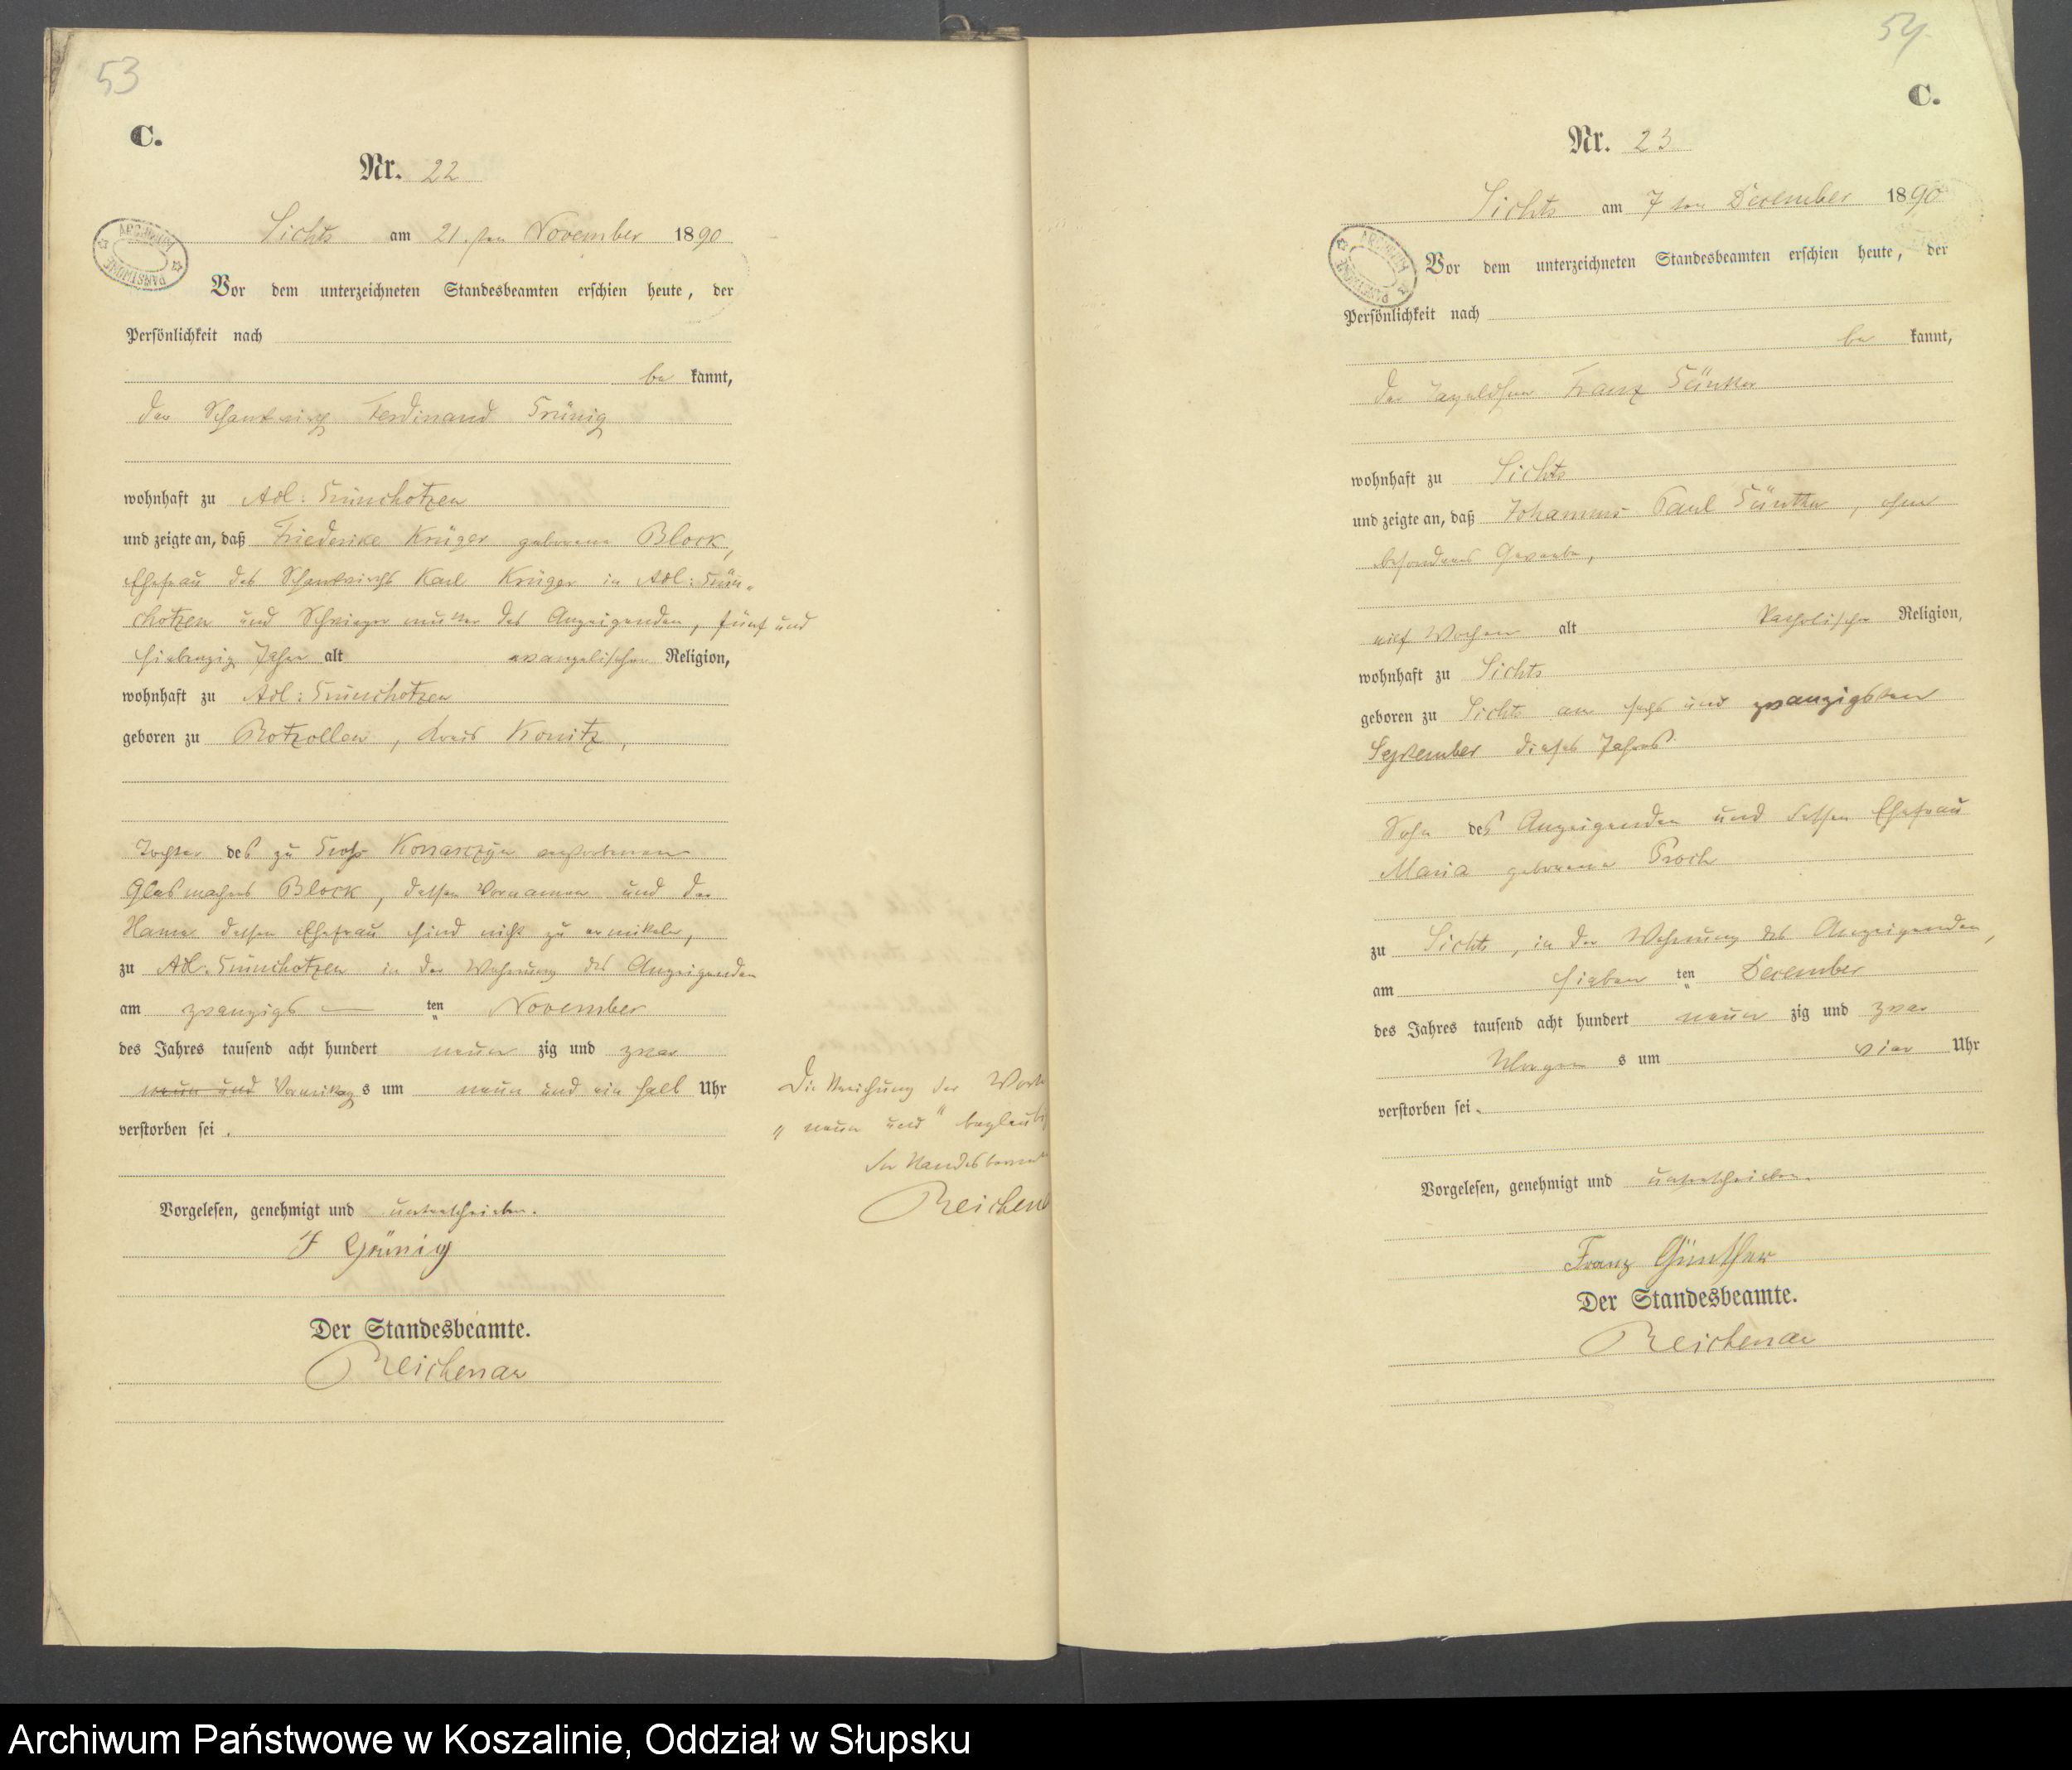 53
C.
Nr. 22
Sichts am 21. ten November 1890
ARCHIWUM PAŃSTWOWE
Vor dem unterzeichneten Standesbeamten erschien heute, der
Persönlichkeit nach
be kannt,
der Schankwirth Ferdinand Grünig
wohnhaft zu Adl: Grünchotzen
und zeigte an, daß Friederike Krüger geborene Block,
Ehefrau des Schankwirths Karl Krüger in Adl: Grün-
chotzen und Schwiegermutter des Anzeigenden, fünf und
siebenzig Jahre alt evangelischer Religion,
wohnhaft zu Adl: Grünchotzen
geboren zu Rotzollen, Kreis Konitz,
Tochter des zu Groß verstorbenen
Glasmachers Block, dessen Vornamen und der
Name dessen Ehefrau sind nicht zu ermitteln,
zu Adl: Grünchotzen in der Wohnung des Anzeigenden
am zwanzigs ten November
des Jahres tausend acht hundert neun zig und zwar
neun und Vormittags um neun und ein halb Uhr
verstorben sei.
Die Streichung der Worte
"neun und" beglaubigt
Der Standesbeamte
Vorgelesen, genehmigt und unterschrieben.
F Grünig
Der Standesbeamte.
Reichenau
54
C.
Nr. 23
Sichts am 7 ten December 1890
ARCHIWUM PAŃSTWOWE
Vor dem unterzeichneten Standesbeamten erschien heute, der
Persönlichkeit nach
be kannt,
der Franz Günther
wohnhaft zu Sichts
und zeigte an, daß Johannes Paul Günther, ohne
besonderes Gewerbe,
elf Wochen alt katholischer Religion,
wohnhaft zu Sichts
geboren zu Sichts am sechs und zwanzigsten
September dieses Jahres
Sohn des Anzeigenden und dessen Ehefrau
Maria geborene
zu Sichts, in der Wohnung des Anzeigenden,
am sieben ten December
des Jahres tausend acht hundert neun zig und zwar
Morgens um vier Uhr
verstorben sei.
Vorgelesen, genehmigt und unterschrieben.
Franz Günther
Der Standesbeamte.
Reichenau
Archiwum Państwowe w Koszalinie, Oddział w Słupsku